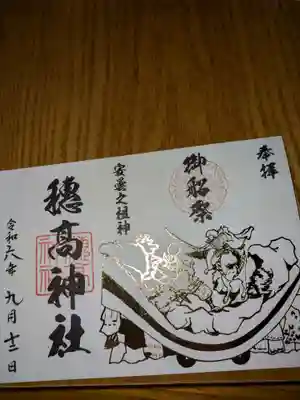 奉拝
御船祭
安曇之祖神
穂高神社
令和六年 九月十二日